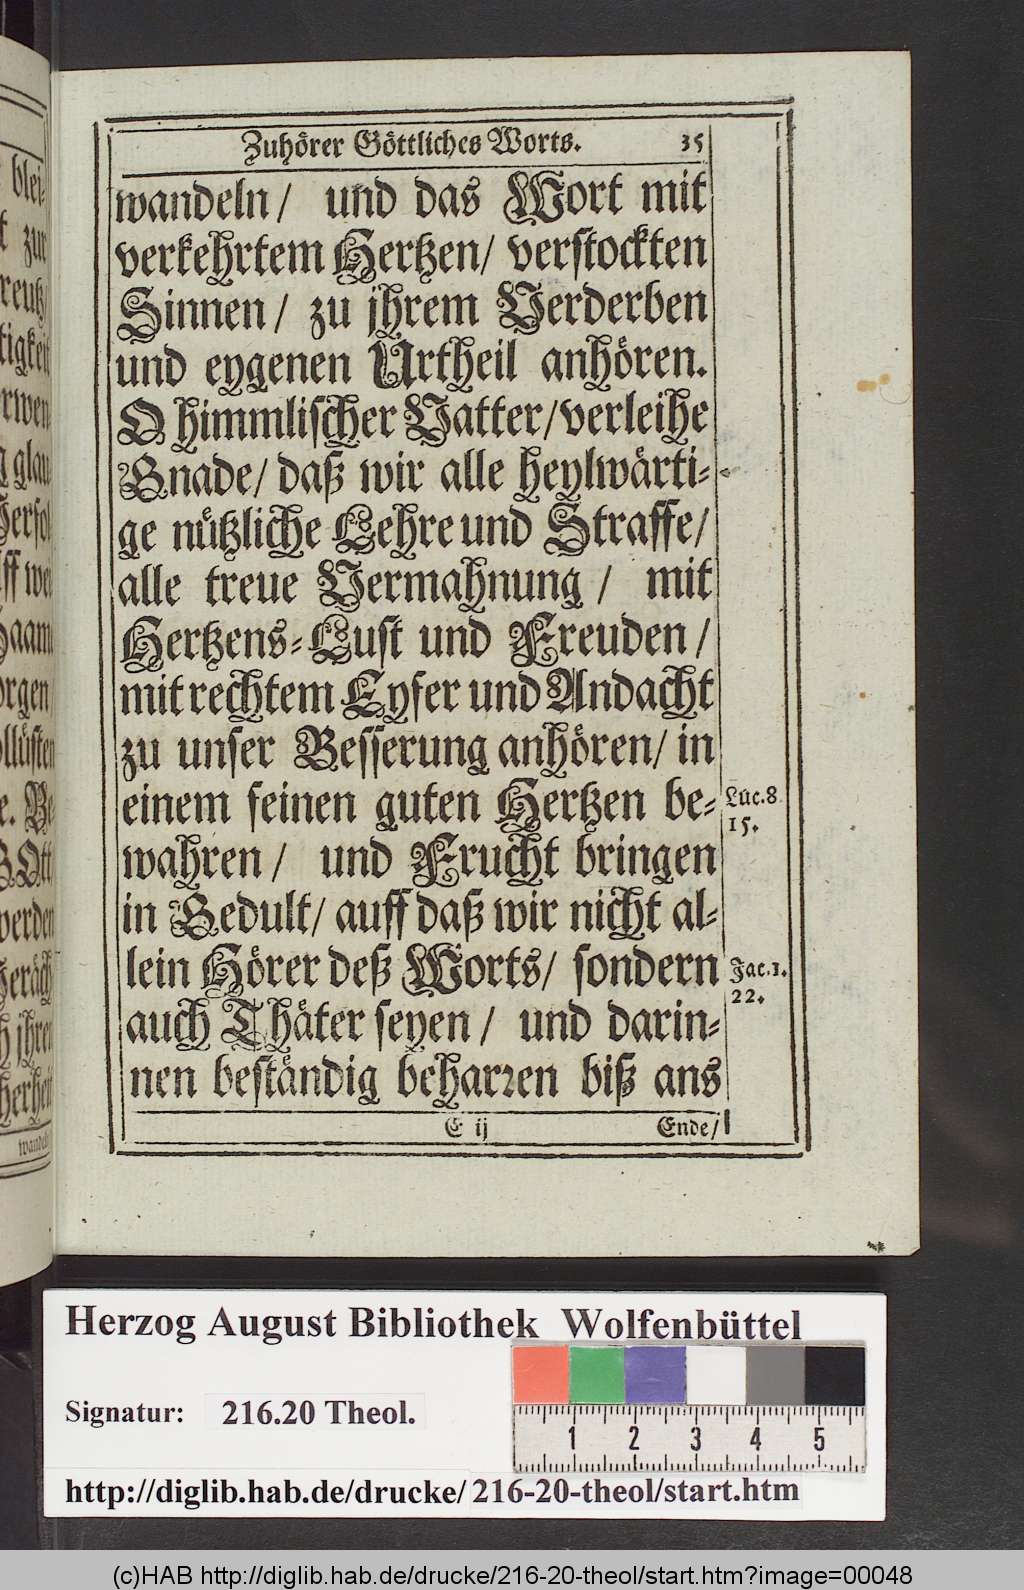 Zuhörer Göttliches Worts. 35
wandeln/ und das Wort mit
verkehrtem Hertzen/ verstockten
Sinnen/ zu jhrem Verderben
und eygenen Urtheil anhören.
O himmlischer Vatter/ verleihe
Gnade/ daß wir alle heylwärti-
ge nützliche Lehre und Straffe/
alle treue Vermahnung/ mit
Hertzens-Lust und Freuden/
mit rechtem Eyfer und Andacht
zu unser Besserung anhören/ in
einem feinen guten Hertzen be-
Luc. 8.
15.
wahren/ und Frucht bringen
in Gedult/ auff daß wir nicht al-
lein Hörer deß Worts/ sondern
Jac. 1.
22.
auch Thäter seyen/ und darin-
nen beständig beharren biß ans
E ij Ende/
blei-
zur
reutz/
tigkeit
rwen
glau
Verfol
ff we
orgen/
llüsten
e. Be
GOtt
werden
Geräch
jhren
cherheit
wandeln
Herzog August Bibliothek Wolfenbüttel
Signatur: 216.20 Theol.
1 2 3 4 5
http://diglib.hab.de/drucke/216-20-theol/start.htm
(c)HAB http://diglib.hab.de/drucke/216-20-theol/start.htm?image=00048